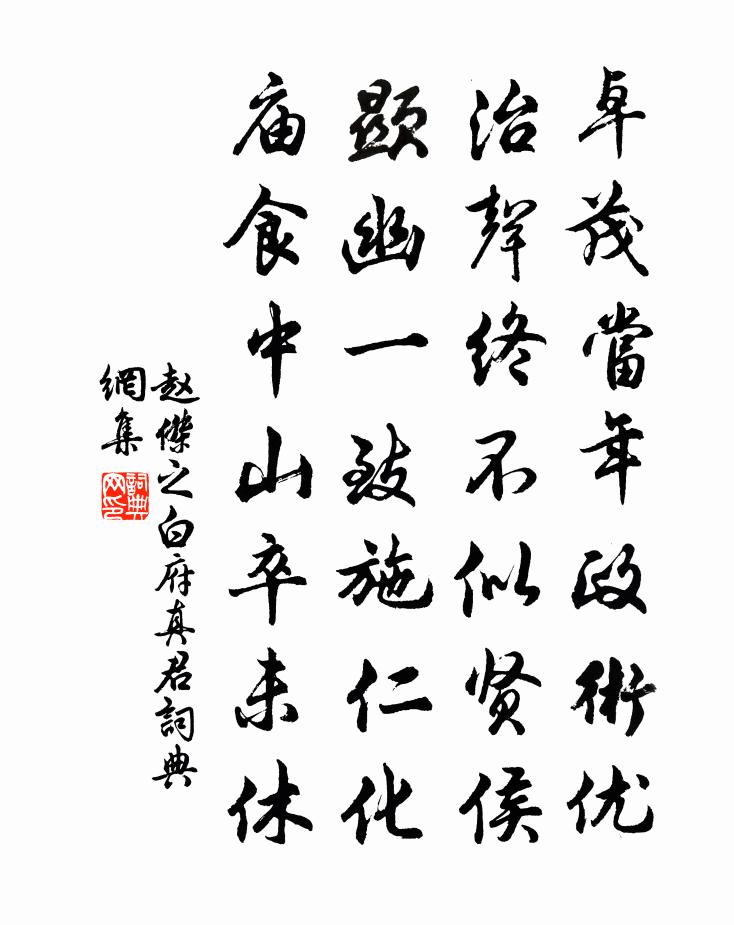 卓茂當年政術优
治聲終不似贤侯
顯幽一致施仁化
庙食中山卒未休
赵傑之白府真君詞典
網集
詞典
网印